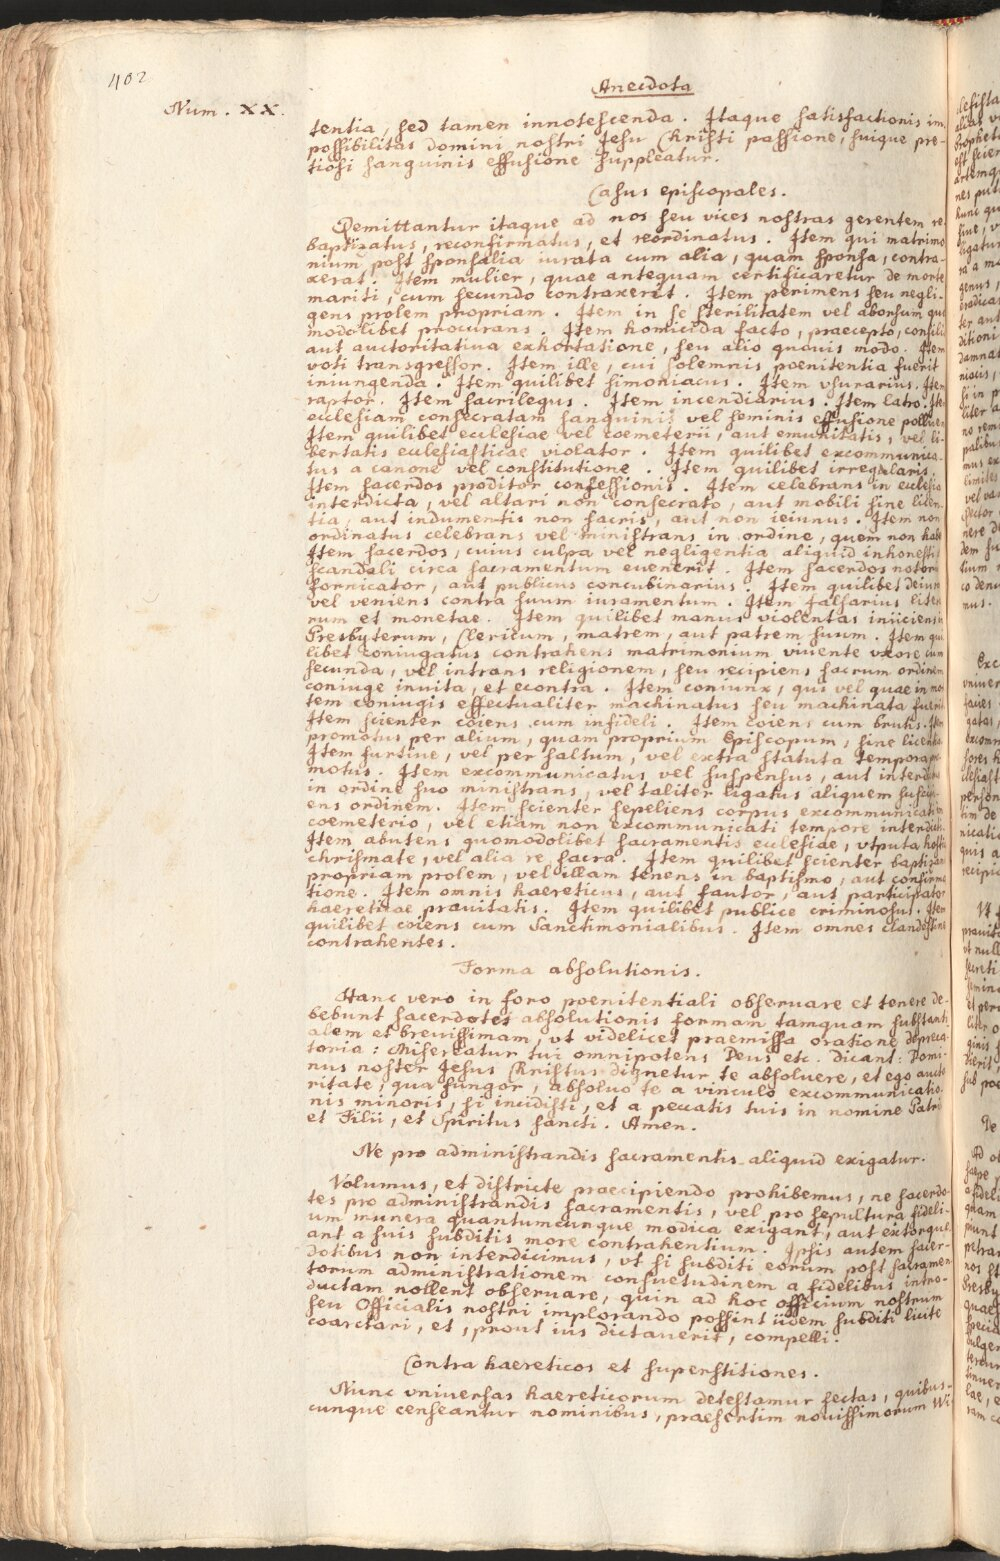 402
Anecdota
Num. XX.
tentia, sed tamen innotescenda. Itaque satisfactionis im
possibilitas Domini nostri Jesu Christi passione, suique pre-
tiosi sanguinis effusione suppleatur.
Casus episcopales.
Demittantur itaque ad nos seu vices nostras gerentem re
baptizatus, reconfirmatus, et reordinatus. Item qui matrimo
nium post sponsalia iurata cum alia, quam sponsa, contra-
xerat. Item mulier, quae antequam certificaretur de morte
mariti, cum secundo contraxerit. Item perimens seu negli-
gens prolem propriam. Item in se sterilitatem vel aborsum quo
modolibet procurans. Item homicida facto, praecepto, consili
aut auctoritativa exhortatione, seu alio quovis modo. Item
voti transgressor. Item ille, cui solemnis poenitentia fuerit
iniungenda. Item quilibet simoniacus. Item vsurarius. Item
raptor. Item sacrilegus. Item incendiarius. Item latro. Ite
ecclesiam consecratam sanguinis vel seminis effusione polluens
Item quilibet ecclesiae vel coemeterii, aut emunitatis, vel li-
bertatis ecclesiasticae violator. Item quilibet excommunica-
tus a canone vel constitutione. Item quilibet irregularis.
Item sacerdos proditor confessionis. Item celebrans in ecclesia
interdicta, vel altari non consecrato, aut mobili sine licen-
tia, aut indumentis non sacris, aut non ieiunus. Item non
ordinatus celebrans vel ministrans in ordine, quem non habe
Item sacerdos, cuius culpa vel negligentia aliquid inhonesti
scandali circa sacramentum euenerit. Item sacerdos notori
fornicator, aut publicus concubinarius. Item quilibet deiura
vel veniens contra suum iuramentum. Item falsarius litera
rum et monetae. Item quilibet manus violentas iniiciens i
Presbyterum, Clericum, matrem, aut patrem suum. Item qui
libet coniugatus contrahens matrimonium viuente vxore cum
secunda, vel intrans religionem, seu recipiens sacrum ordinem
coniuge inuita, et econtra. Item coniunx, qui vel quae in mor
tem coniugis effectualiter machinatus seu machinata fuerit
Item scienter coiens cum infideli. Item coiens cum brutis. Item
promotus per alium, quam proprium Episcopum, sine licentia
Item furtiue, vel per saltum, vel extra statuta tempora pro
motus. Item excommunicatus vel suspensus, aut interdictus
in ordine suo ministrans, vel taliter ligatus aliquem suscipi
ens ordinem. Item scienter sepeliens corpus excommunicati in
coemeterio, vel etiam non excommunicati tempore interdicti.
Item abutens quomodolibet sacramentis ecclesiae, vtputa hostia
chrismate, vel alia re sacra. Item quilibet scienter baptizans
propriam prolem, vel illam tenens in baptismo, aut confirma
tione. Item omnis haereticus, aut fautor, aut participator
haereticae prauitatis. Item quilibet publice criminosus. Item
quilibet coiens cum Sanctimonialibus. Item omnes clandestine
contrahentes.
Forma absolutionis.
Hanc vero in foro poenitentiali obseruare et tenere de-
bebunt sacerdotes absolutionis formam tamquam substanti
alem et breuissimam, vt videlicet praemissa oratione depreca
toria: Misereatur tui omnipotens Deus etc. Dicant: Domi-
nus noster Jesus Christus dignetur te absoluere, et ego aucto
ritate, qua fungor, absoluo te a vinculo excommunicatio-
nis minoris, si incidisti, et a peccatis tuis in nomine Patri
et Filii, et Spiritus sancti. Amen.
Ne pro administrandis sacramentis aliquid exigatur.
Volumus, et districte praecipiendo prohibemus, ne sacerdo-
tes pro administrandis sacramentis, vel pro sepultura fideli-
um munera quantumcunque modica exigant, aut extorque
ant a suis subditis more contrahentium. Ipsis autem sacer-
dotibus non interdicimus, vt si subditi eorum post sacramen-
torum administrationem consuetudinem a fidelibus intro-
ductam nollent obseruare, quin ad hoc officium nostrum
seu Officialis nostri implorando possint iidem subditi licite
coarctari, et, prout ius dictauerit, compelli.
Contra haereticos et superstitiones.
Nunc vniuersas haereticorum detestamur sectas, quibus-
cunque censeantur nominibus, praesertim nouissimorum Wi-